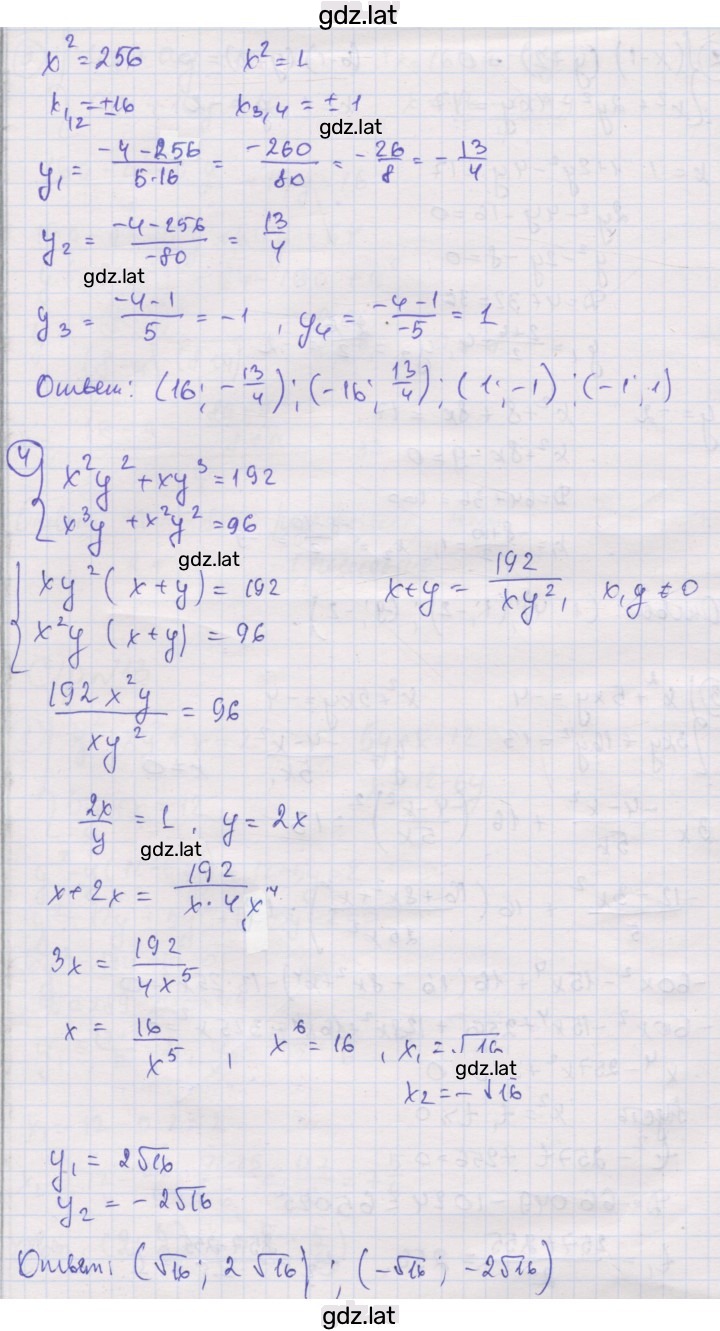 gdz.lat
x² = 256    x² = 1
x₁,₂ = ±16    x₃,₄ = ±1
gdz.lat
y₁ = (-4-256)/(5·16) = (-260)/80 = -26/8 = -13/4
y₂ = (-4-256)/(-80) = 13/4
gdz.lat
y₃ = (-4-1)/5 = -1 , y₄ = (-4-1)/(-5) = 1
Ответ: (16; -13/4); (-16; 13/4); (1; -1); (-1; 1)
4
{ x²y² + xy³ = 192
x³y + x²y² = 96
gdz.lat
{ xy²(x+y) = 192    x+y = 192/(xy²), x,y ≠ 0
x²y (x+y) = 96
(192x²y)/(xy²) = 96
2x/y = 1, y = 2x
gdz.lat
x+2x = 192/(x·4x⁴)
3x = 192/(4x⁵)
x = 16/x⁵ , x⁶ = 16 , x₁ = √16
gdz.lat
x₂ = -√16
y₁ = 2√16
y₂ = -2√16
Ответ: (√16; 2√16); (-√16; -2√16)
gdz.lat